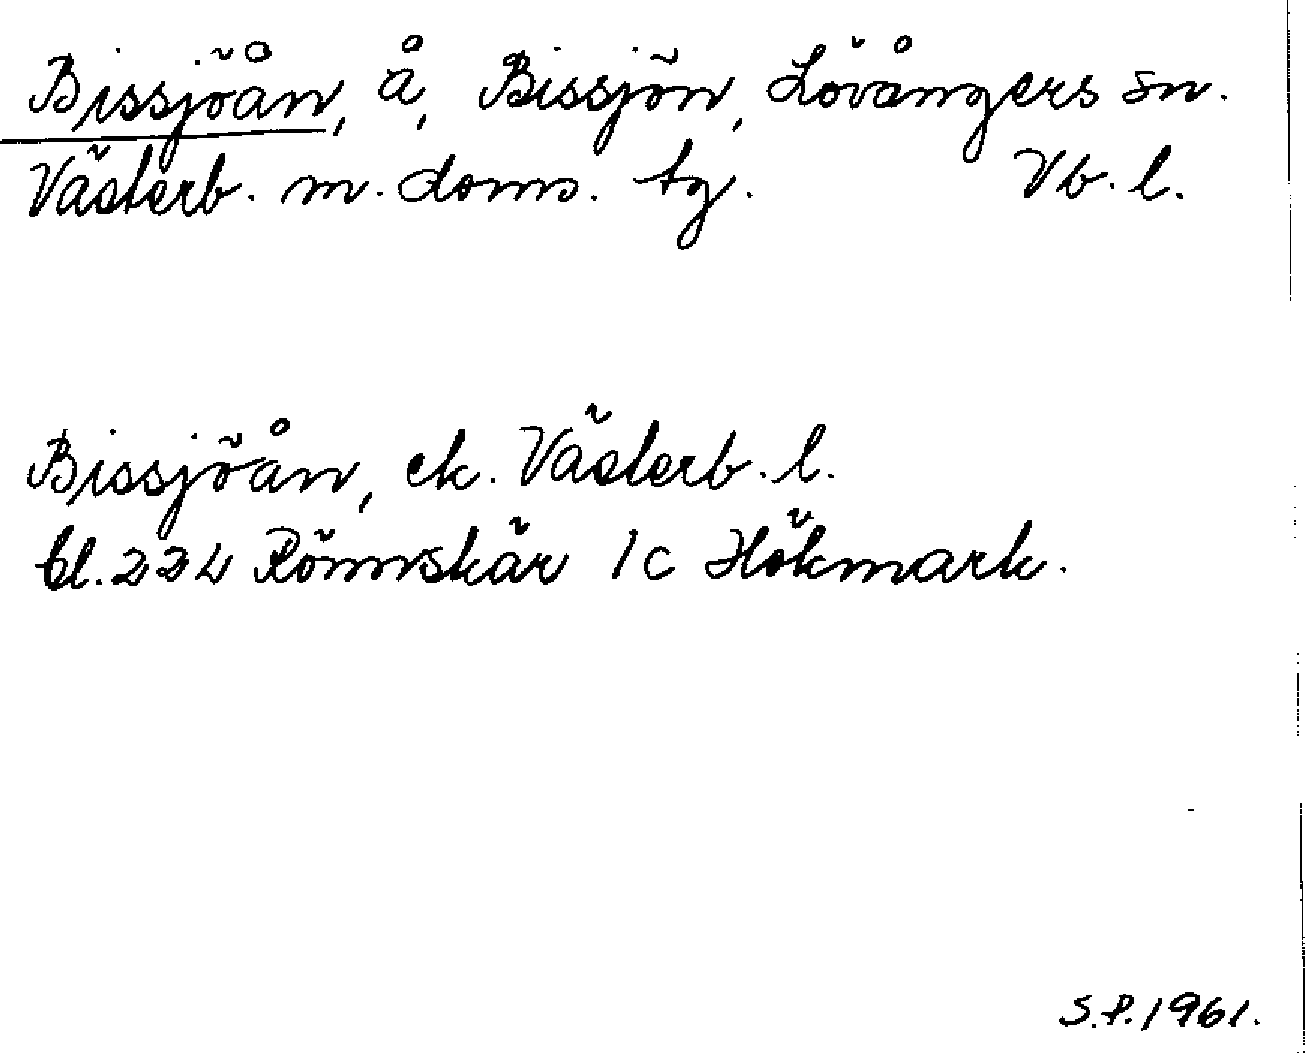 Bissjöån, å, Bissjön, Lövångers sn.
Västerb. m. doms. tg. Vb. l.
Bissjöån, ek. Västerb. l.
bl. 224 Rönnskär 1c Hökmark.
S.P. 1961.